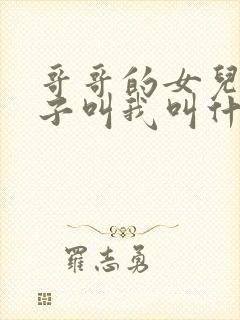 哥哥的女兒
子叫我叫什
羅志勇